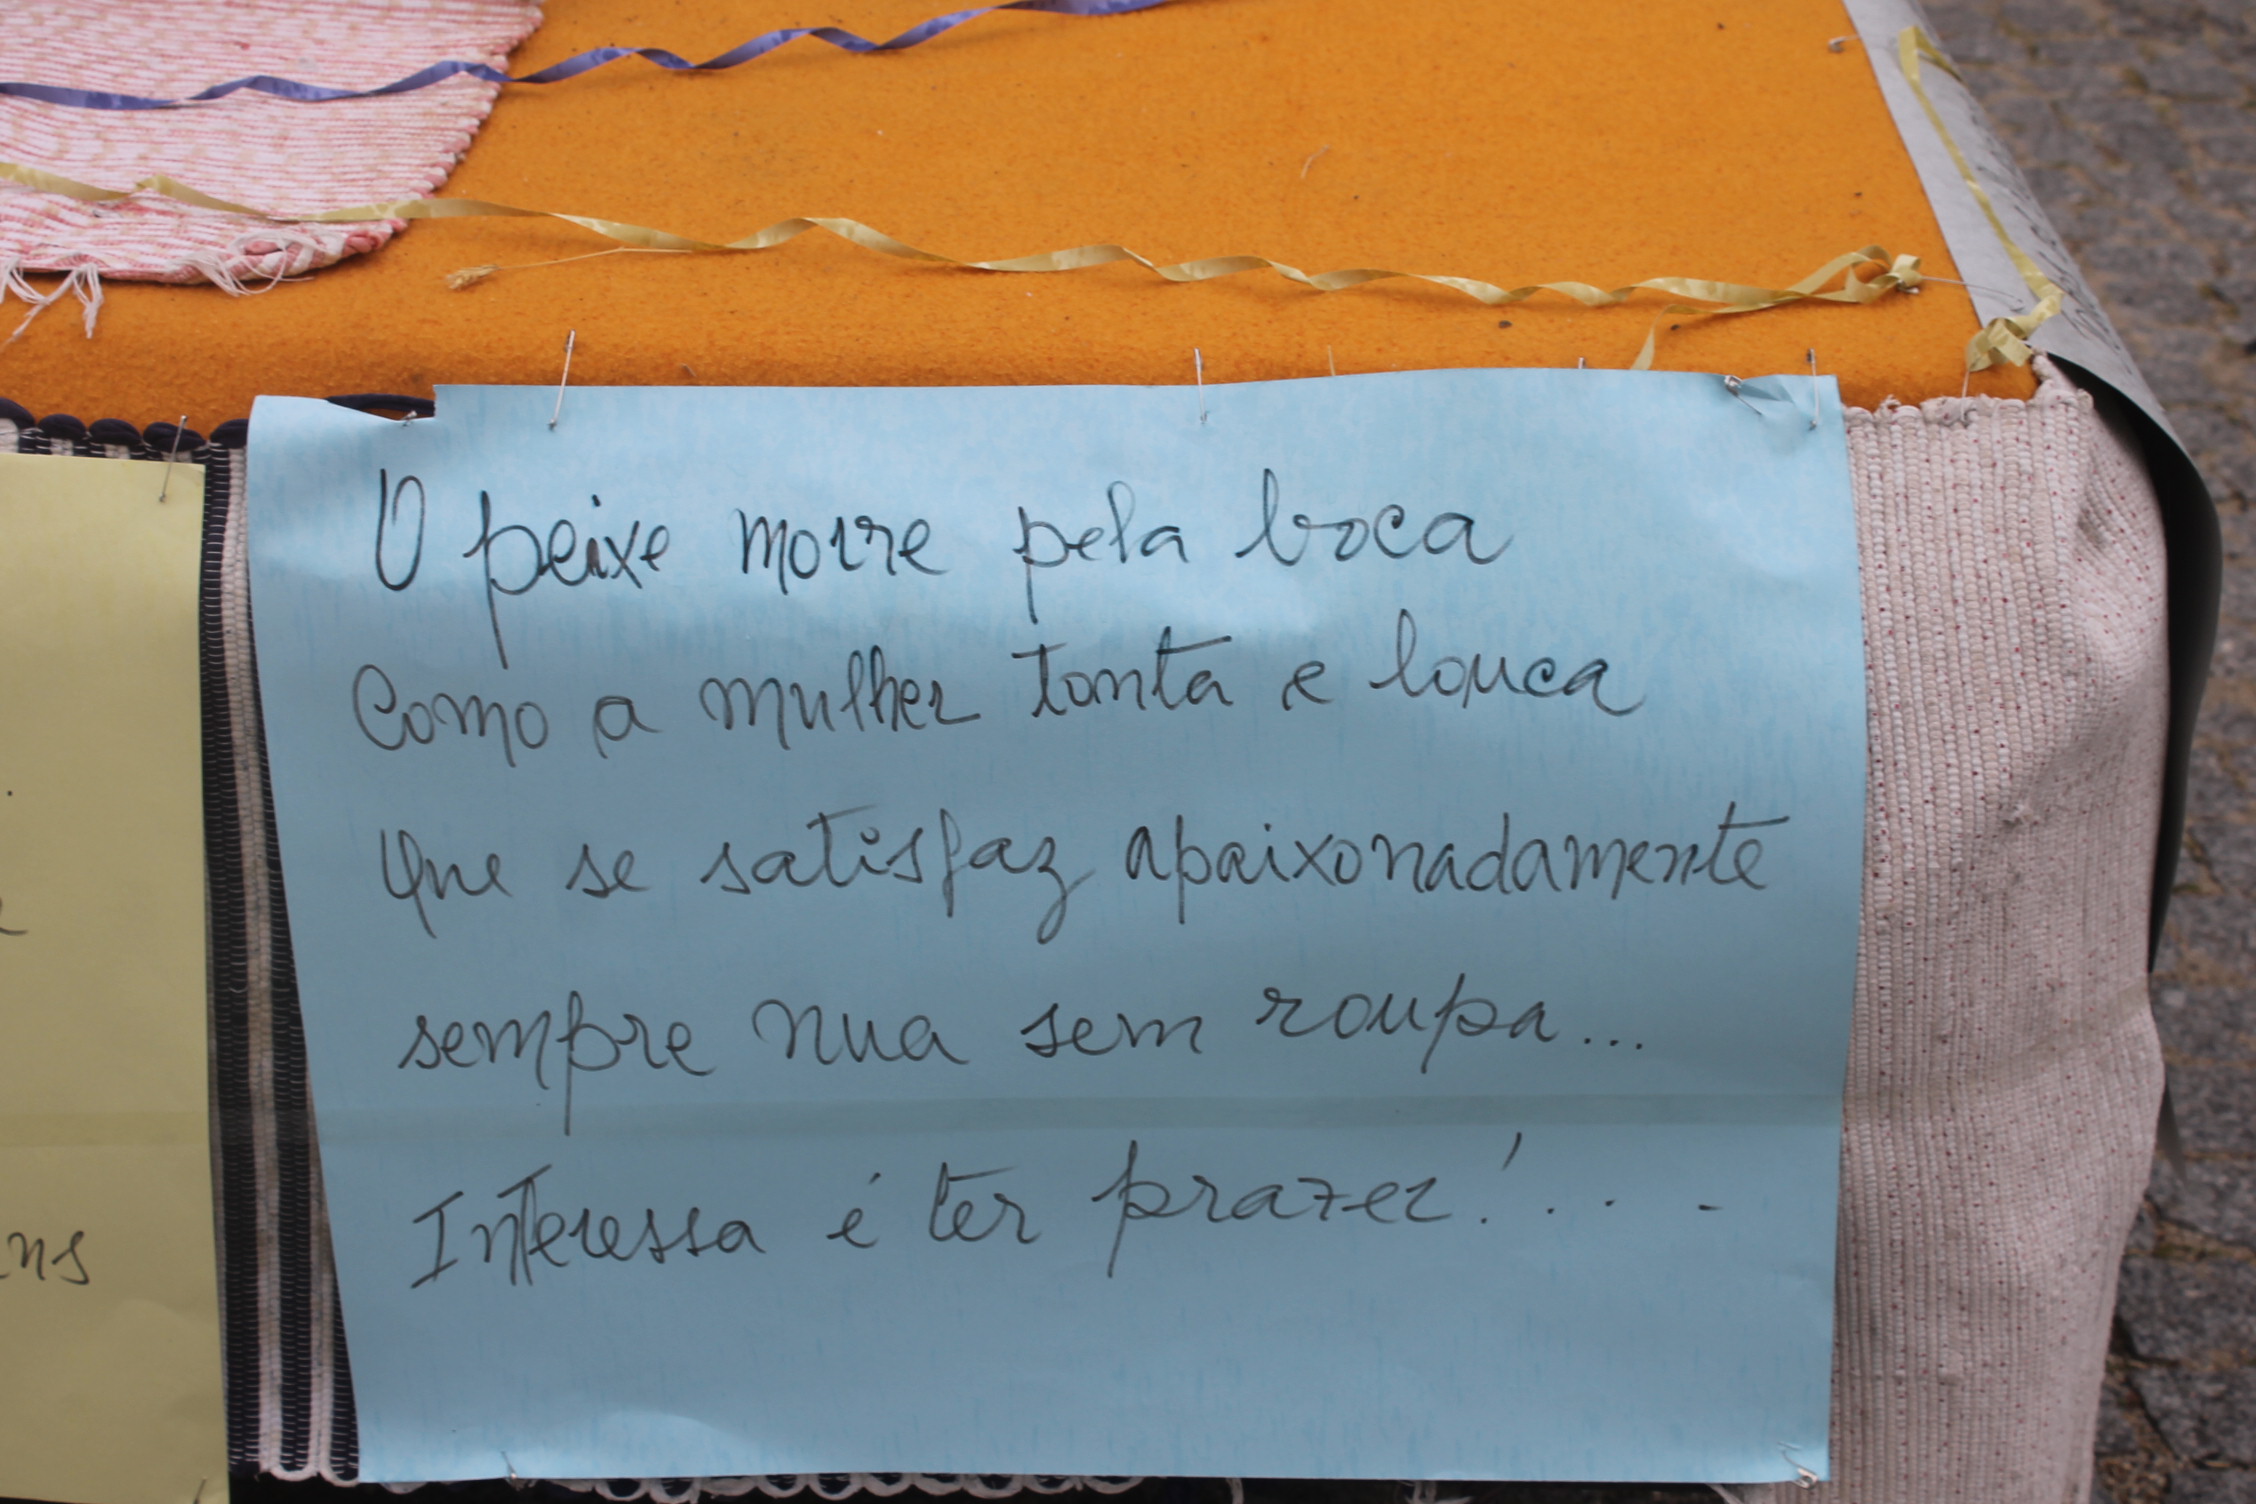 O peixe morre pela boca
Como a mulher tonta e louca
Que se satisfaz apaixonadamente
sempre nua sem roupa...
Interessa é ter prazer!...